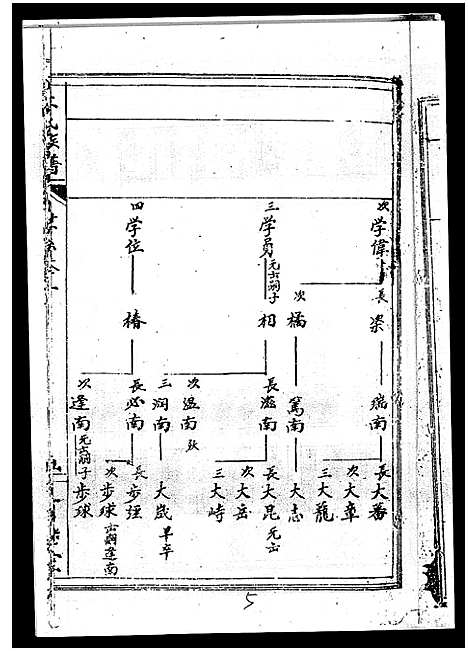 次 学偉
長 梁
瑞南
長 大番
次 大章
三 大龍
次 橘
篤南
大志
三 学勇 元士嗣子
相
長 滋南
長 大昆 元士
次 大岳
三 大峙
次 温南 玖
三 润南
大嵗 早卒
四 学位
椿
長 必南
長 步堙
次 步球 出嗣逢南
次 逢南 元士嗣子
步球
氏族譜
5